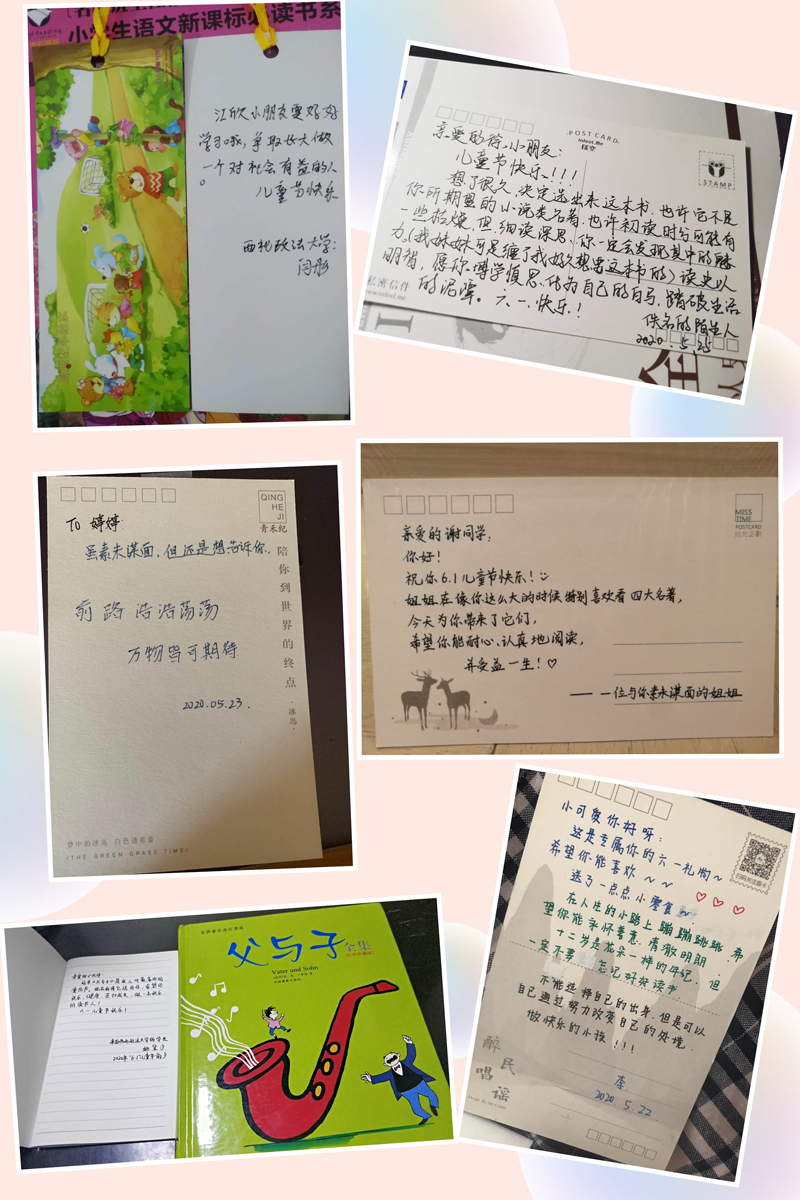 小学生语文新课标必读书系
江欣小朋友要好好
学习哦,争取长大做
一个对社会有益的人
。
儿童节快乐
西北政法大学:
闫彤
POST CARD
STAMP
亲爱的符小朋友:
儿童节快乐!!!
想了很久,决定选出来这本书,也许它不是
你所期盼的小说类名著,也许初读时分可能有
一些枯燥,但细读深思,你一定会发现其中的魅
力。(我妹妹可是缠了我好久想要这本书的)读史以
明智,愿你博学慎思,化为自己的白马,踏破生活
的泥潭。六一快乐!
佚名的陌生人
2020.5.25
私密信件
QING
HE
JI
青禾纪
TO 婷婷
虽素未谋面,但还是想告诉你..
前路浩浩荡荡
万物皆可期待
2020.05.23.
陪你到世界的终点
·冰岛·
梦中的冰岛 白色透着蓝
/THE GREEN GRASS TIME/
MISS
TIME
POSTCARD
亲爱的谢同学:
你好!
祝你6.1儿童节快乐!
姐姐在像你这么大的时候特别喜欢看四大名著,
今天为你带来了它们,
希望你能耐心、认真地阅读,
并受益一生!♡
—— 一位与你素未谋面的姐姐
父与子全集
Vater und Sohn
小可爱你好呀:
这是专属你的六一礼物~
希望你能喜欢~~
送了一点点小零食
♡ ♡ ♡
在人生的小路上蹦蹦跳跳,希
望你能永怀善意,清澈明朗,
十二岁是花朵一样的年纪,但
一定不要忘记好好读书
不能选择自己的出身,但是可以
自己通过努力改变自己的处境
做快乐的小孩!!!
李
2020.5.22
醉民唱谣